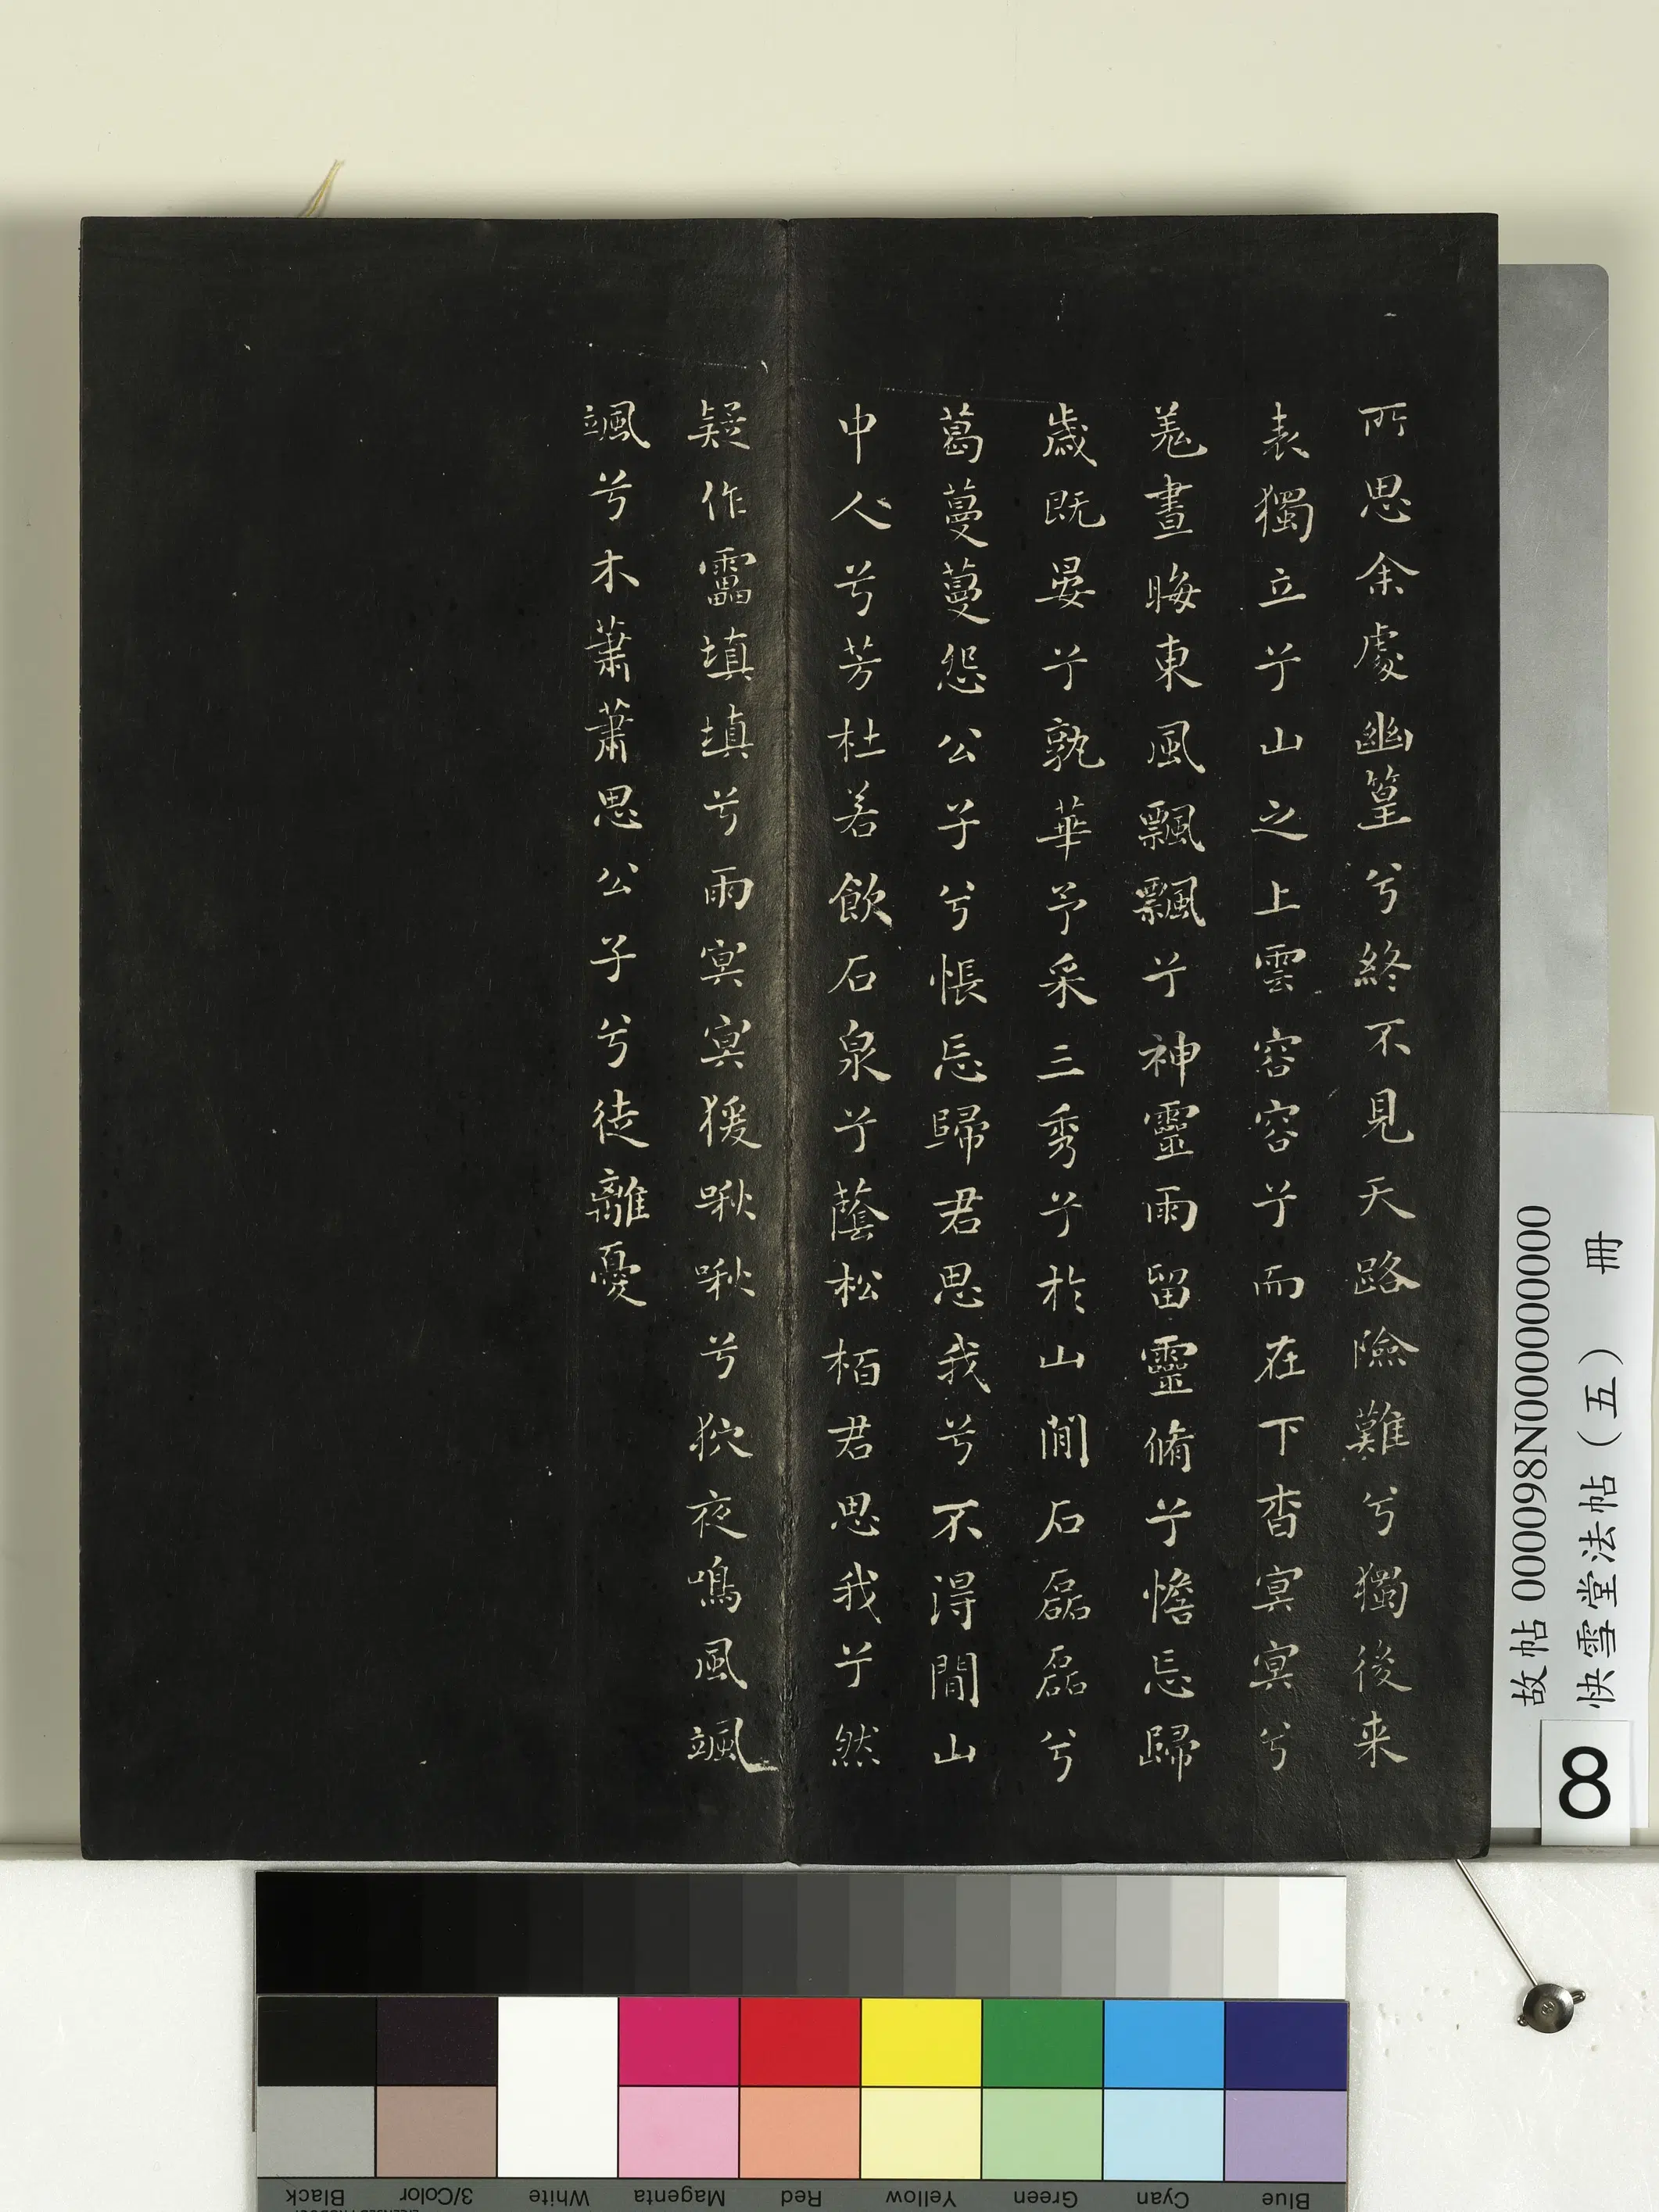 所思余處幽篁兮終不見天路險難兮獨後来
表獨立兮山之上雲容容兮而在下杳冥冥兮
羌晝晦東風飄飄兮神靈雨留靈脩兮憺忘歸
歲既晏兮孰華予采三秀兮於山間石磊磊兮
葛蔓蔓怨公子兮悵忘歸君思我兮不得閒山
中人兮芳杜若飲石泉兮蔭松栢君思我兮然
疑作靁填填兮雨冥冥猨啾啾兮狖夜鳴風颯
颯兮木蕭蕭思公子兮徒離憂
故帖 000098N000000000
快雪堂法帖（五） 冊
8
Blue Cyan Green Yellow Red Magenta White 3/Color Black